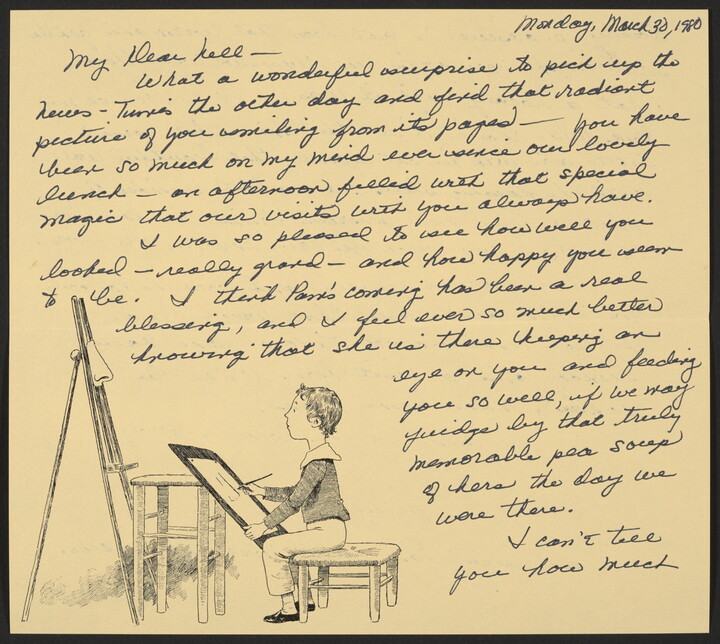 Monday, March 30, 1980
My Dear Nell —
What a wonderful surprise to pick up the
News-Times the other day and find that radiant
picture of you smiling from its pages — you have
been so much on my mind ever since our lovely
lunch — an afternoon filled with that special
magic that our visits with you always have.
I was so pleased to see how well you
looked — really grand — and how happy you seem
to be. I think Pam's coming has been a real
blessing, and I feel ever so much better
knowing that she is there keeping an
eye on you and feeding
you so well, if we may
judge by that truly
memorable pea soup
of hers the day we
were there.
I can't tell
you how much